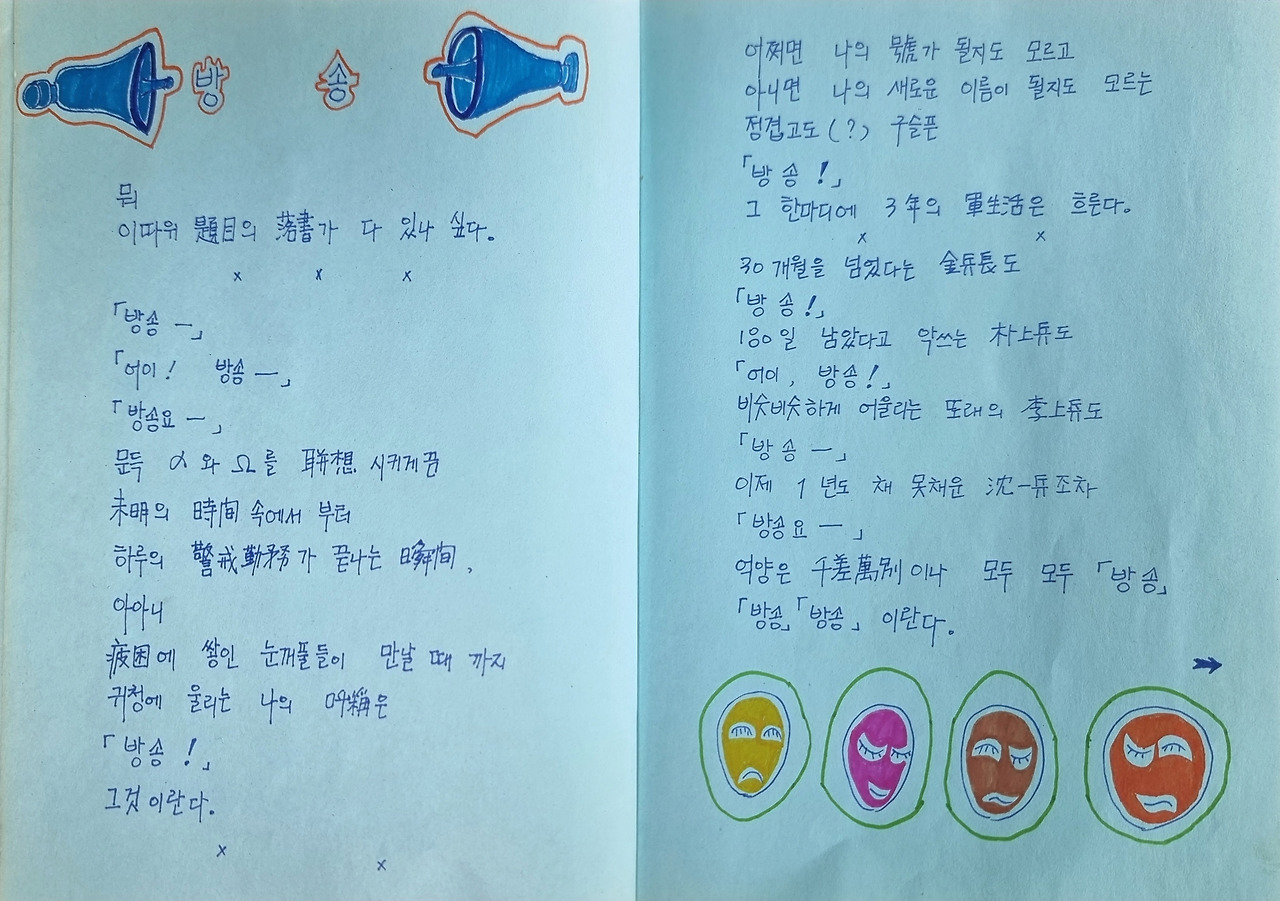 방 송
뭐
이따위 題目의 落書가 다 있나 싶다.
x x x
「방송 ―」
「어이! 방송 ―」
「방송요 ―」
문득 α 와 Ω를 聯想 시키게끔
未明의 時間 속에서 부터
하루의 警戒勤務가 끝나는 瞬間,
아아니
疲困에 쌓인 눈꺼풀들이 만날 때 까지
귀청에 울리는 나의 呼稱은
「방송 !」
그것이란다.
x x
어쩌면 나의 號가 될지도 모르고
아니면 나의 새로운 이름이 될지도 모르는
정겹고도(?) 구슬픈
「방송 !」
그 한마디에 3年의 軍生活은 흐른다.
x x
30개월을 넘었다는 金兵長도
「방송!」
180일 남았다고 악쓰는 朴上兵도
「어이, 방송!」
비슷비슷하게 어울리는 또래의 李上兵도
「방송 ―」
이제 1년도 채 못채운 沈一兵조차
「방송요 ―」
억양은 千差萬別이나 모두 모두 「방송」
「방송」「방송」 이란다.